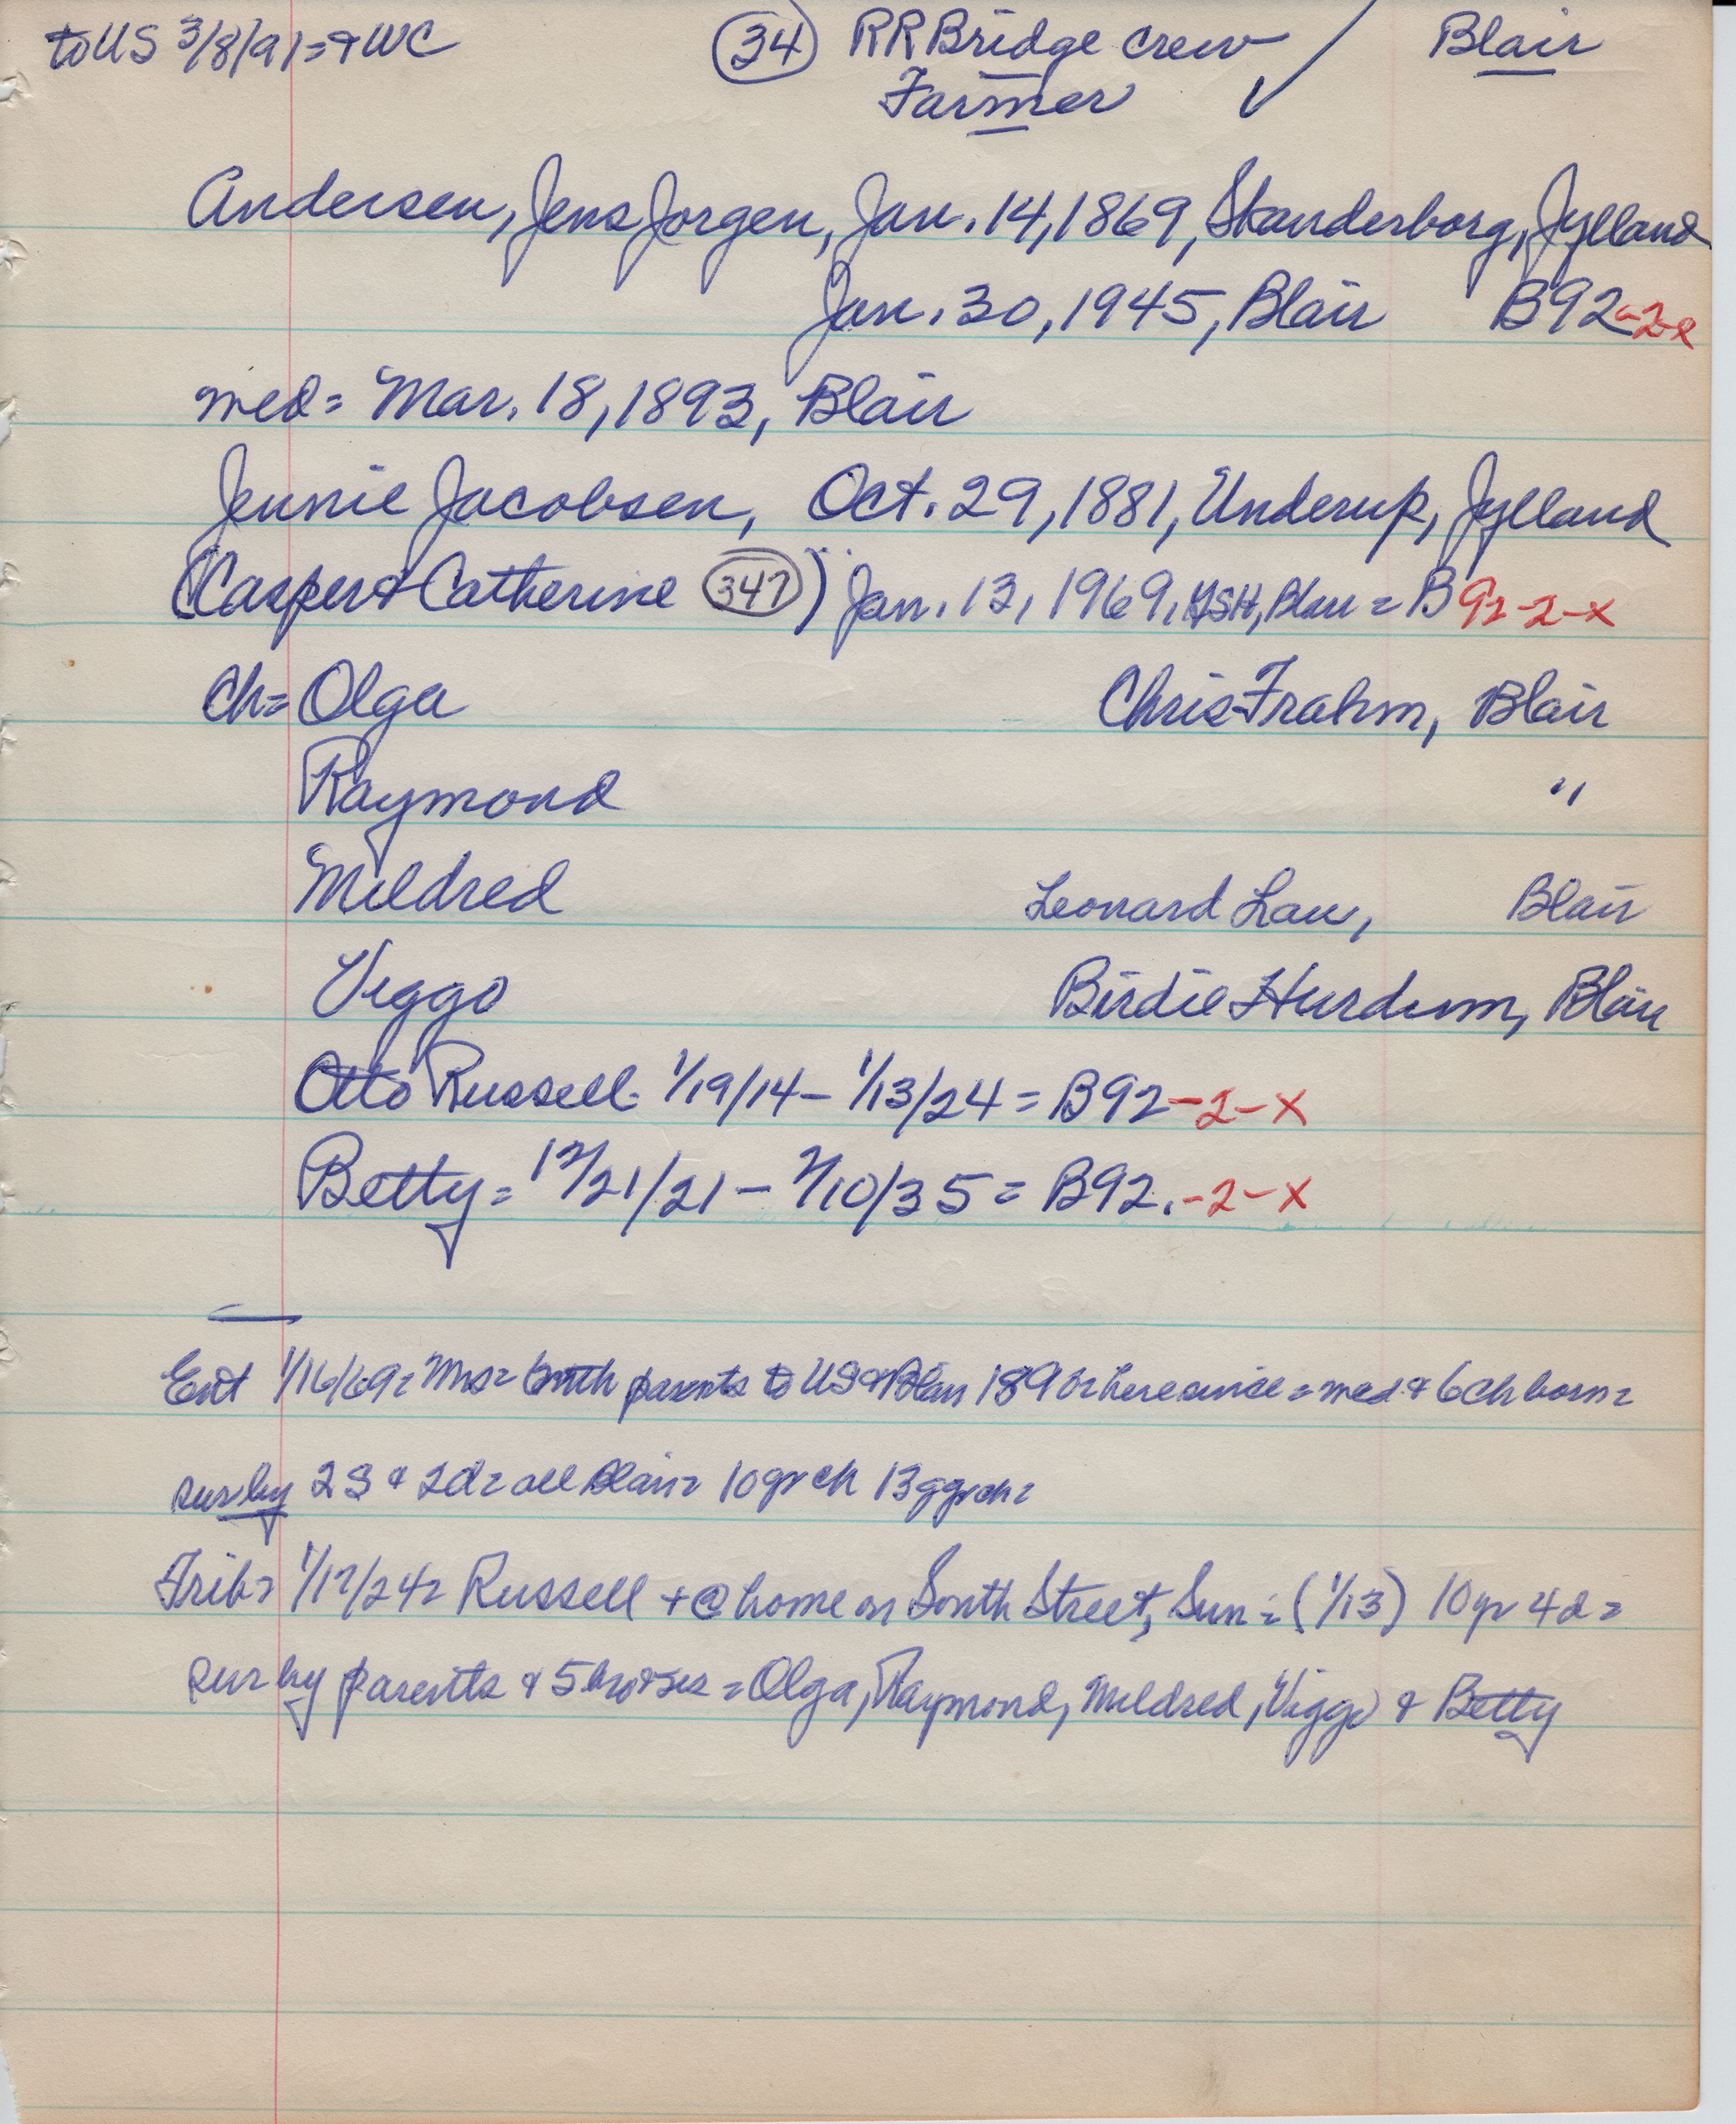 to US 3/8/91 = & WC (34) RR Bridge crew ✓ Blair
Farmer ✓
Andersen, Jens Jorgen, Jan. 14, 1869, Skanderborg, Jylland
Jan. 30, 1945, Blair B92-2-x
med = Mar. 18, 1893, Blair
Jennie Jacobsen, Oct. 29, 1881, Underup, Jylland
(Casper & Catherine (347)) Jan. 13, 1969, Blair = B92-2-x
Ch = Olga Chris Frahm, Blair
Raymond "
Mildred Leonard Lau, Blair
Viggo Birdie Hurdum, Blair
Otto Russell 1/19/14 - 1/13/24 = B92-2-x
Betty = 12/21/21 - 7/10/35 = B92.-2-x
Ent 1/16/69 = Mrs = with parents to US & Blair 189 here since = med & 6 ch born =
sur by 2 S & 2 d = all Blair = 10 gr ch 13 ggr ch =
Trib = 1/17/24 = Russell + @ home on South Street, Sun = (1/13) 10 yr 4 d =
sur by parents & 5 bro & ses = Olga, Raymond, Mildred, Viggo & Betty